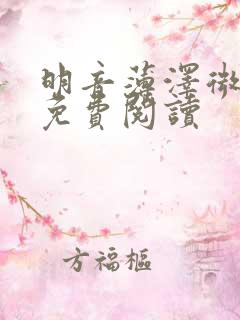 明音薄澤微
免費閱讀
方福樞